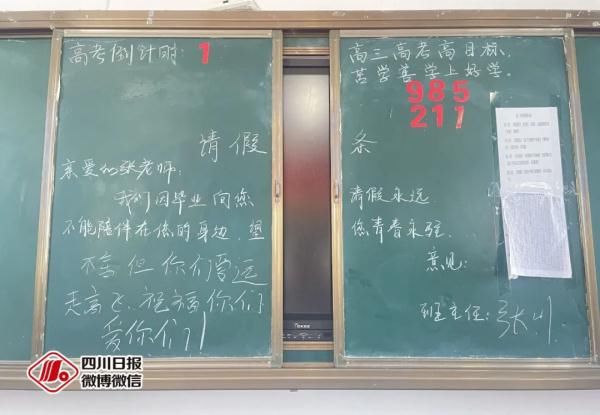 高考倒计时: 1
请假
亲爱的张老师:
我们因毕业向您
不能陪伴在您的身边. 望
不舍但你们要远
走高飞、祝福你们
爱你们!
高三高考高目标,
苦学善学上好学。
985
211
条
请假永远
您青春永驻.
意见:
班主任: 张川
四川日报
微博微信